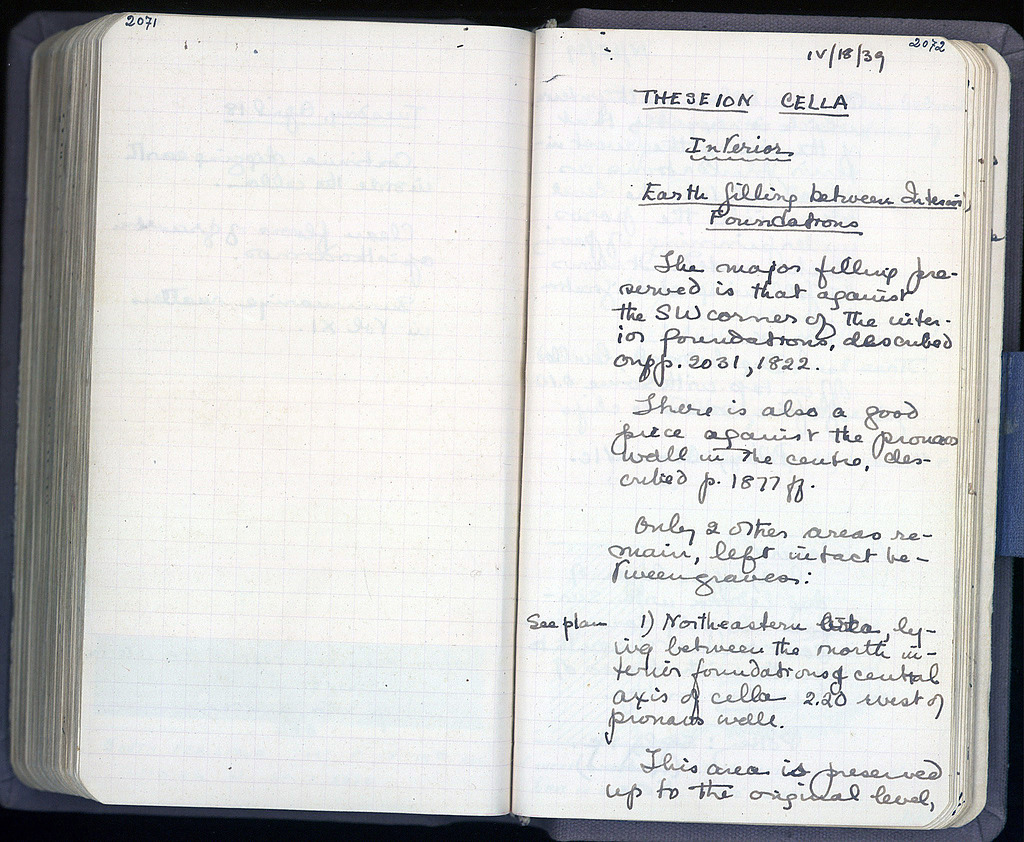 2071
2072
IV/18/39
THESEION CELLA
Interior
Earth filling between Interior
Foundations
The major filling pre-
served is that against
the SW corner of the inter-
ior foundations, described
on pp. 2031, 1822.
There is also a good
piece against the pronaos
wall in the centre, des-
cribed p. 1877 ff.
Only 2 other areas re-
main, left intact be-
tween graves:
See plan 1) Northeastern, ly-
ing between the north in-
terior foundations & central
axis of cella 2.20 west of
pronaos wall.
This area is preserved
up to the original level,